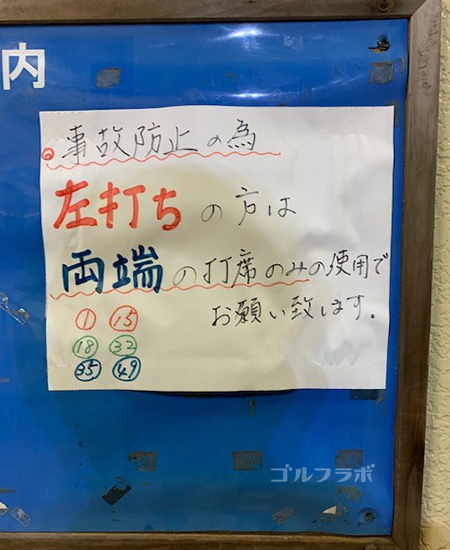 内
事故防止の為
左打ちの方は
両端の打席のみの使用で
お願い致します。
① ⑮
⑱ ㉜
㉟ ㊾
ゴルフラボ